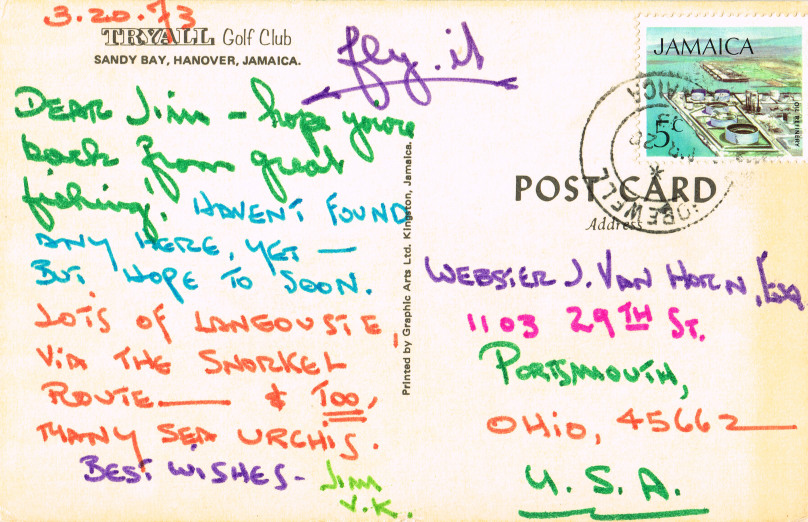 3.20.73
TRYALL Golf Club
SANDY BAY, HANOVER, JAMAICA.
fly it
DEAR Jim – hope you're
back from great
fishing. HAVEN'T FOUND
ANY HERE, YET —
BUT HOPE TO SOON.
LOTS OF LANGOUSTE,
VIA THE SNORKEL
ROUTE — & TOO,
MANY SEA URCHIS.
BEST WISHES –
Jim
V.K.
Printed by Graphic Arts Ltd. Kingston, Jamaica.
JAMAICA
5c
OIL REFINERY
HOPEWELL
JAMAICA
POST CARD
Address
WEBSTER J. VAN HORN, Esq
1103 29TH ST.
PORTSMOUTH,
OHIO, 45662
U.S.A.